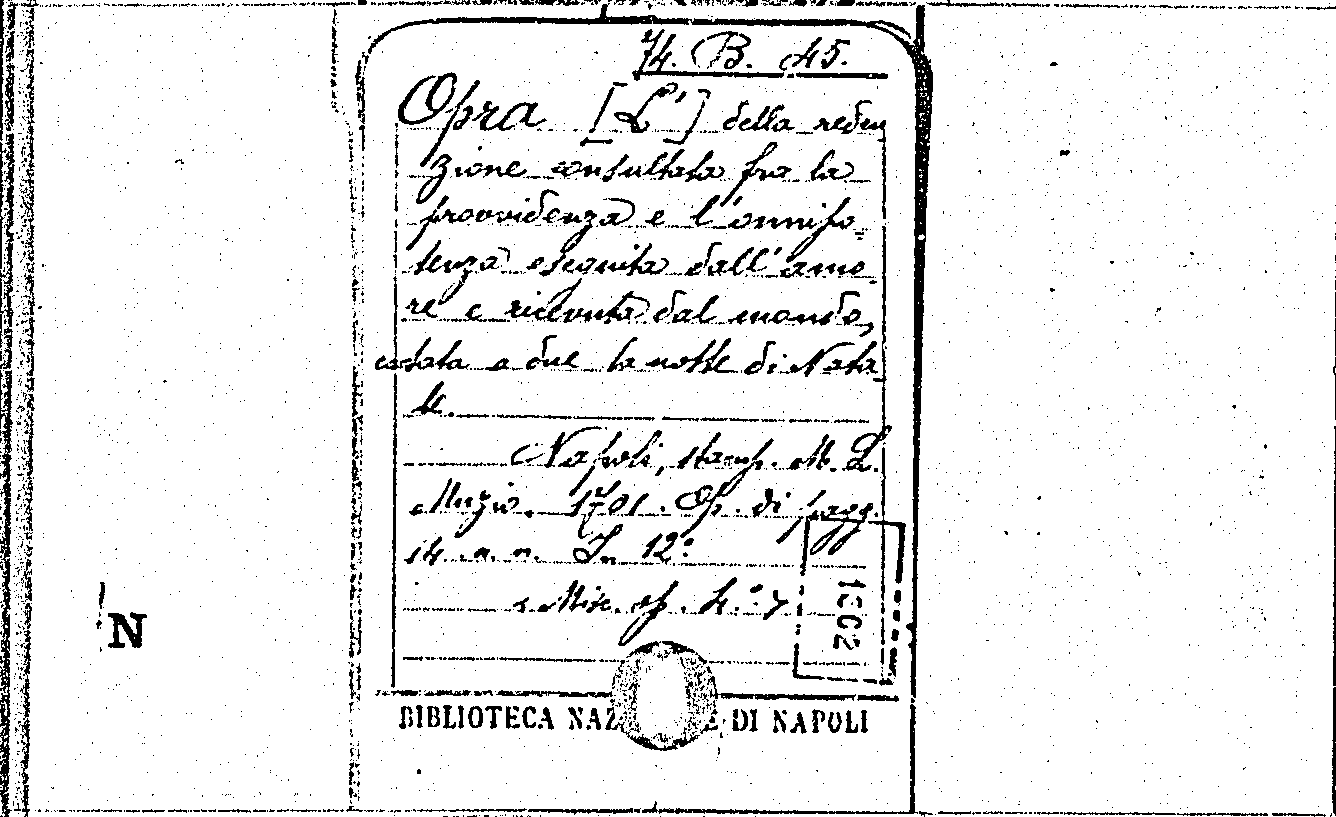 74. B. 45.
Opra [L'] della reden
zione consultata fra la
provvidenza e l'onnipo-
tenza eseguita dall'amo-
re e ricevuta dal mondo,
cantata a due la notte di Nata-
le.
Napoli, stamp. M. L.
Muzio. 1701. Op. di pagg.
14. n. n. In 12.°
Misc. op. 4.° 7
1962
N
BIBLIOTECA NAZ E DI NAPOLI